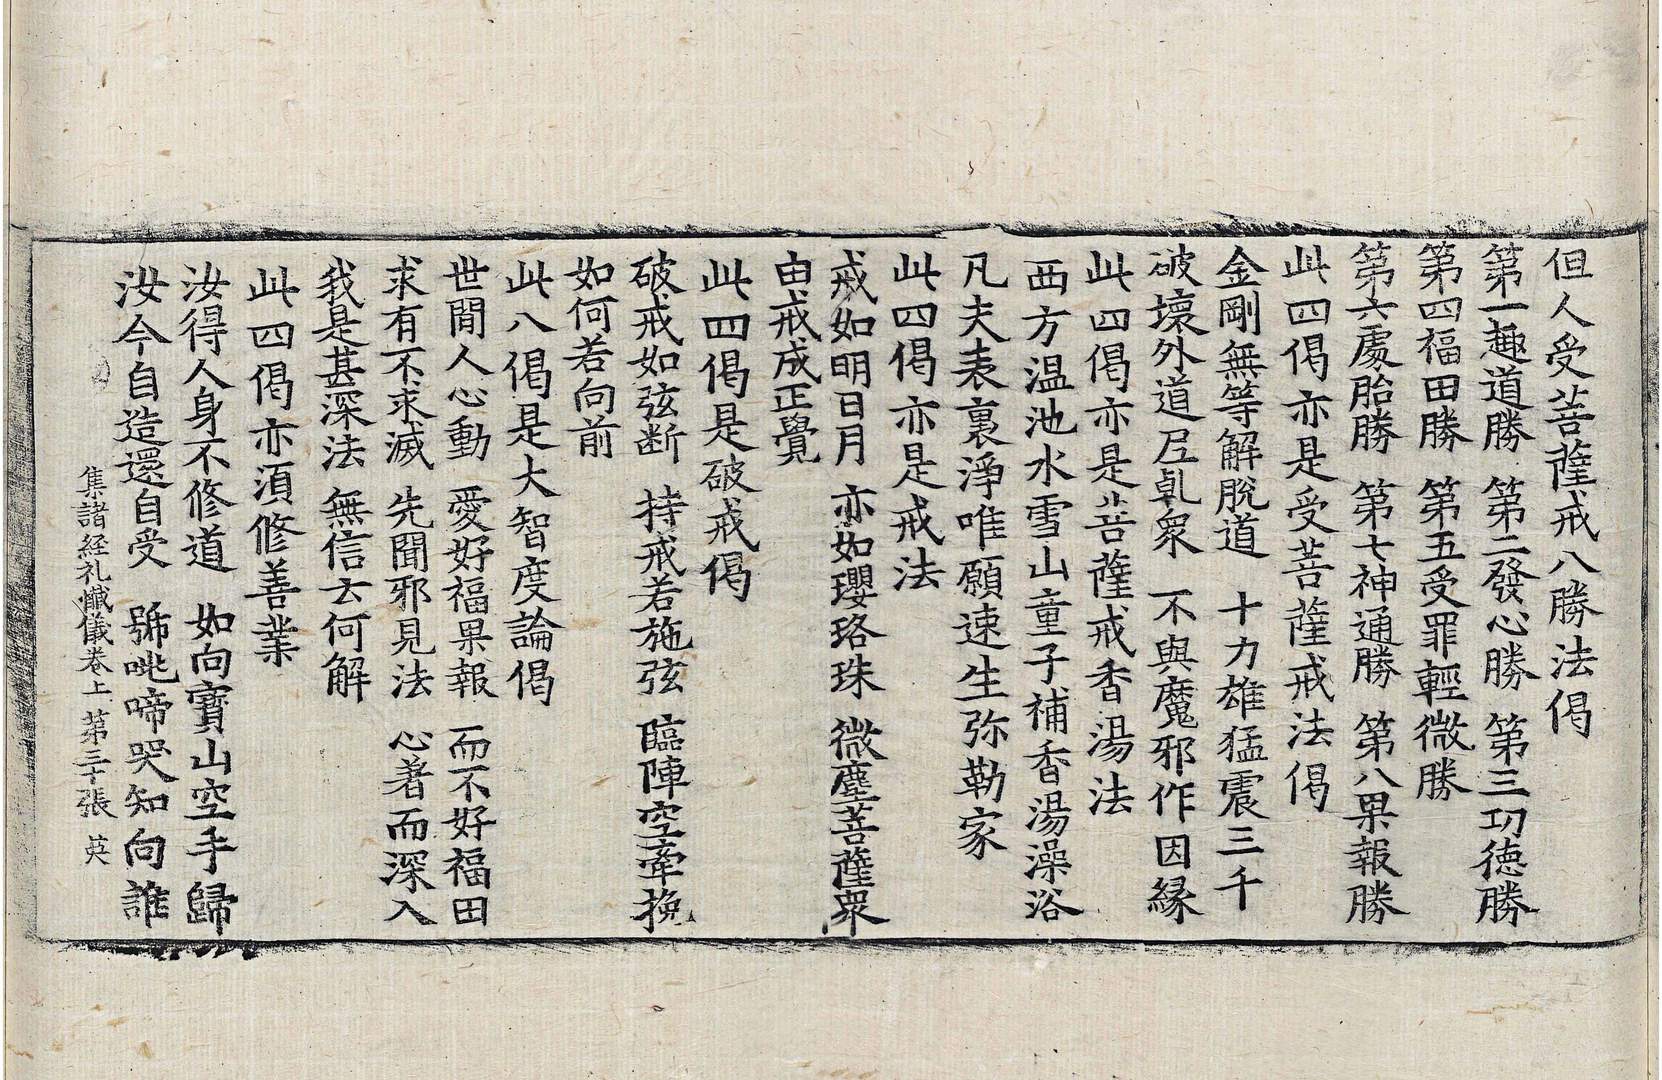 但人受菩薩戒八勝法偈
第一趣道勝 第二發心勝 第三功德勝
第四福田勝 第五受罪輕微勝
第六處胎勝 第七神通勝 第八果報勝
此四偈亦是受菩薩戒法偈
金剛無等解脫道 十力雄猛震三千
破壞外道尼乹衆 不與魔邪作因縁
此四偈亦是菩薩戒香湯法
西方温池水雪山童子補香湯澡浴
凡夫表裏淨唯願速生弥勒家
此四偈亦是戒法
戒如明日月 亦如瓔珞珠 微塵菩薩衆
由戒成正覺
此四偈是破戒偈
破戒如弦断 持戒若施弦 臨陣空牽挽
如何若向前
此八偈是大智度論偈
世間人心動 愛好福果報 而不好福田
求有不求滅 先聞邪見法 心著而深入
我是甚深法 無信云何解
此四偈亦湏修善業
汝得人身不修道 如向寶山空手歸
汝今自造還自受 號咷啼哭知向誰
集諸経礼懺儀卷上 第三十張 英